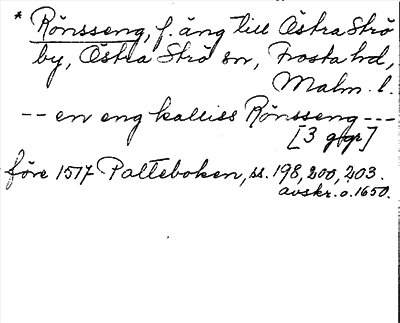 * Rönsseng, f. äng till Östra Strö
by, Östra Strö sn, Frosta hd,
Malm. l.
-- en eng kalliss Rönsseng ---
[3 ggr]
före 1517 Palteboken, ss. 198, 200, 203.
avskr. o. 1650.